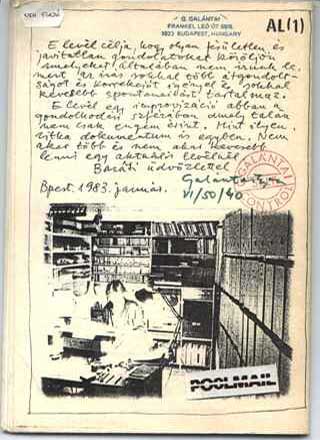 G. GALÁNTAI
FRANKEL LEÓ ÚT 68/B.
1023 BUDAPEST, HUNGARY
AL(1)
E levél célja, hogy olyan felületlen és
javítatlan gondolatokat közöljön
amelyeket általában nem írunk le,
mert az írás sokkal több átgondolt-
ságot és korrekciót igényel és sokkal
kevesebb spontaneitást tartalmaz.
E levél egy improvizáció abban a
gondolkodási szférában amely talán
nem csak engem érint. Mint ilyen
ritka dokumentum is egyben. Nem
akar több és nem akar kevesebb
lenni egy aktuális levélnél.
Baráti üdvözlettel
Galántai
Bpest. 1983. január.
VI/50/40
GALÁNTAI
CONTROL
POOLMAIL